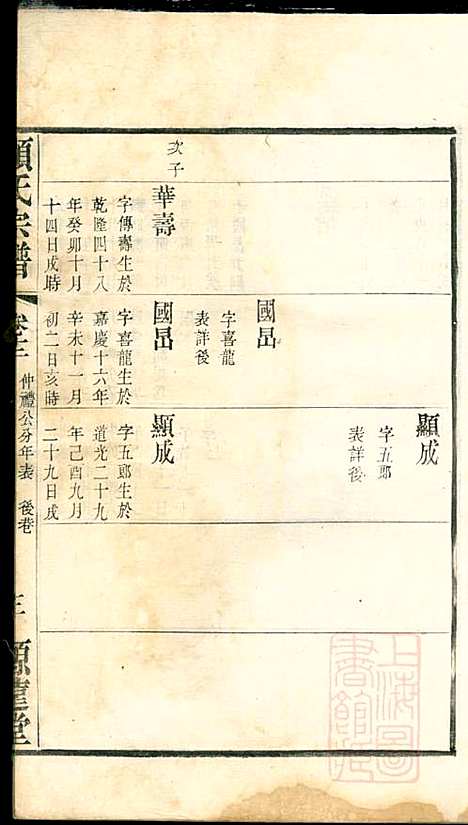 顯成
字五郎
表詳後
國昂
字喜龍
表詳後
次子
華壽
字傳壽生於
乾隆四十八
年癸卯十月
十四日戌時
國昂
字喜龍生於
嘉慶十六年
辛未十一月
初二日亥時
顯成
字五郎生於
道光二十九
年己酉九月
二十九日戌
氏宗譜
仲禮公分年表 後巷
三
堂
上海圖
書館藏